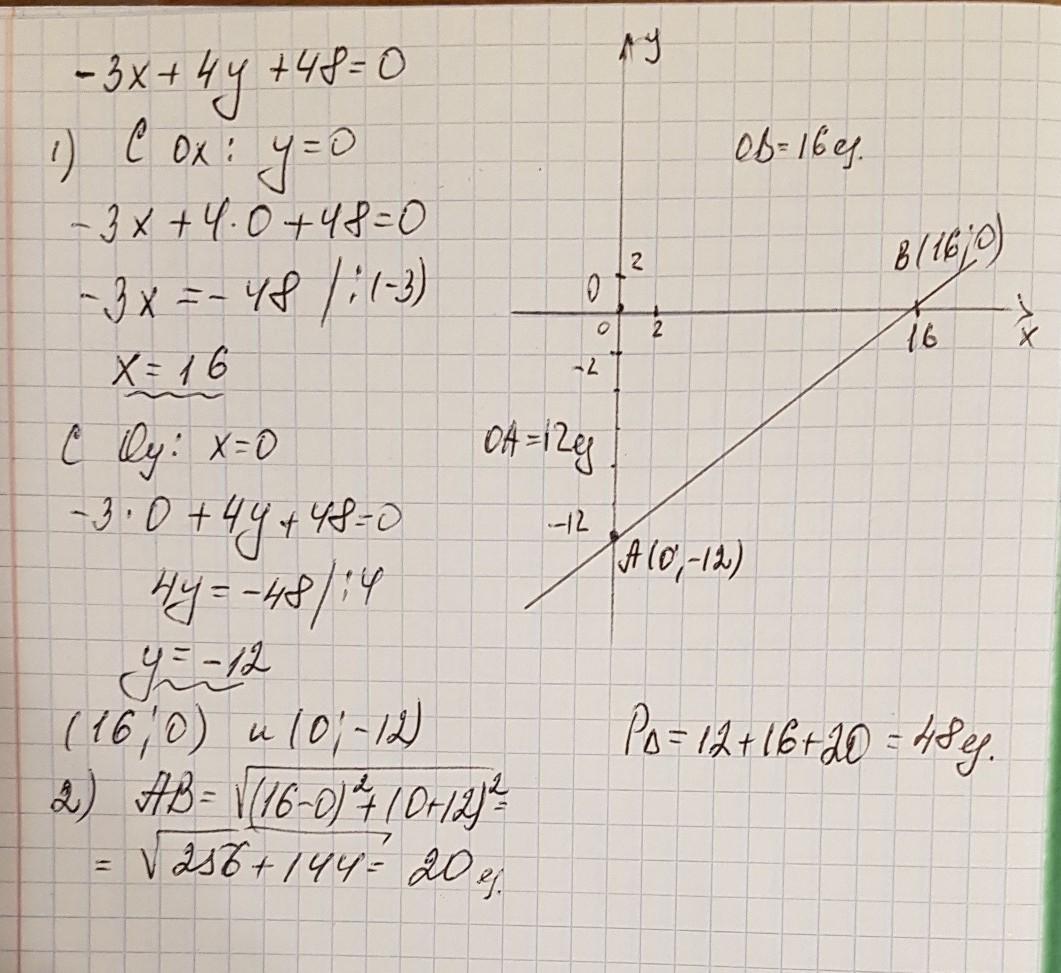 -3x + 4y + 48 = 0
1) С Ox: y = 0
-3x + 4·0 + 48 = 0
-3x = -48 /:(-3)
x = 16
С Oy: x = 0
-3·0 + 4y + 48 = 0
4y = -48 /:4
y = -12
(16; 0) и (0; -12)
2) AB = √((16-0)² + (0+12)²) =
= √(256 + 144) = 20 ед.
y
OB = 16 ед.
B(16; 0)
2
0
0 2 16 x
-2
OA = 12 ед
-12
A(0; -12)
P∆ = 12 + 16 + 20 = 48 ед.